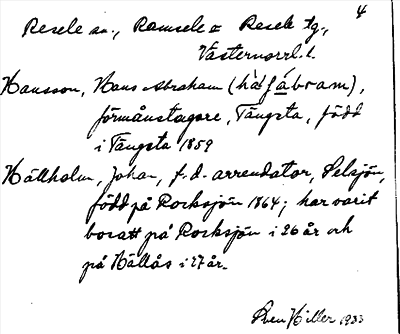 4
Resele sn., Ramsele o Resele tg.,
Västernorrl. l.
Hansson, Hans Abraham (hàfábram),
förmånstagare, Tängsta, född
i Tängsta 1859
Hällholm, Johan, f.d. arrendator, Selsjön,
född på Rocksjön 1864; har varit
bosatt på Rocksjön i 26 år och
på Hällås i 27 år.
Sven Hiller 1933